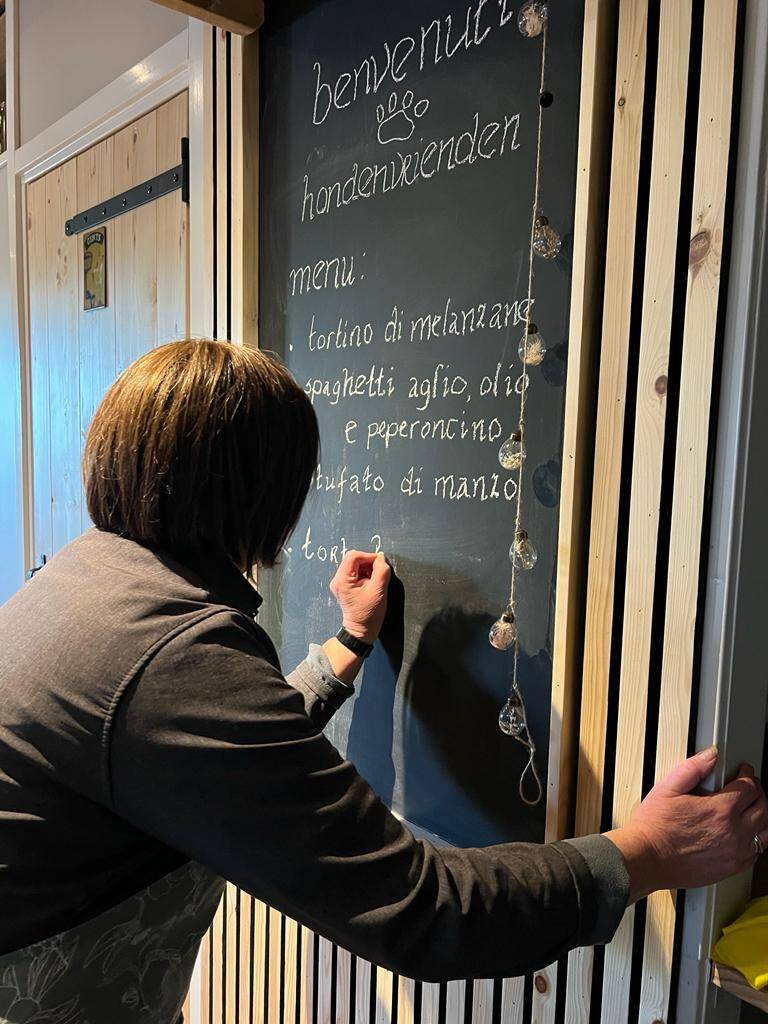 benvenuti
hondenvrienden
menu:
• tortino di melanzane
spaghetti aglio, olio
e peperoncino
tufato di manzo
• tort